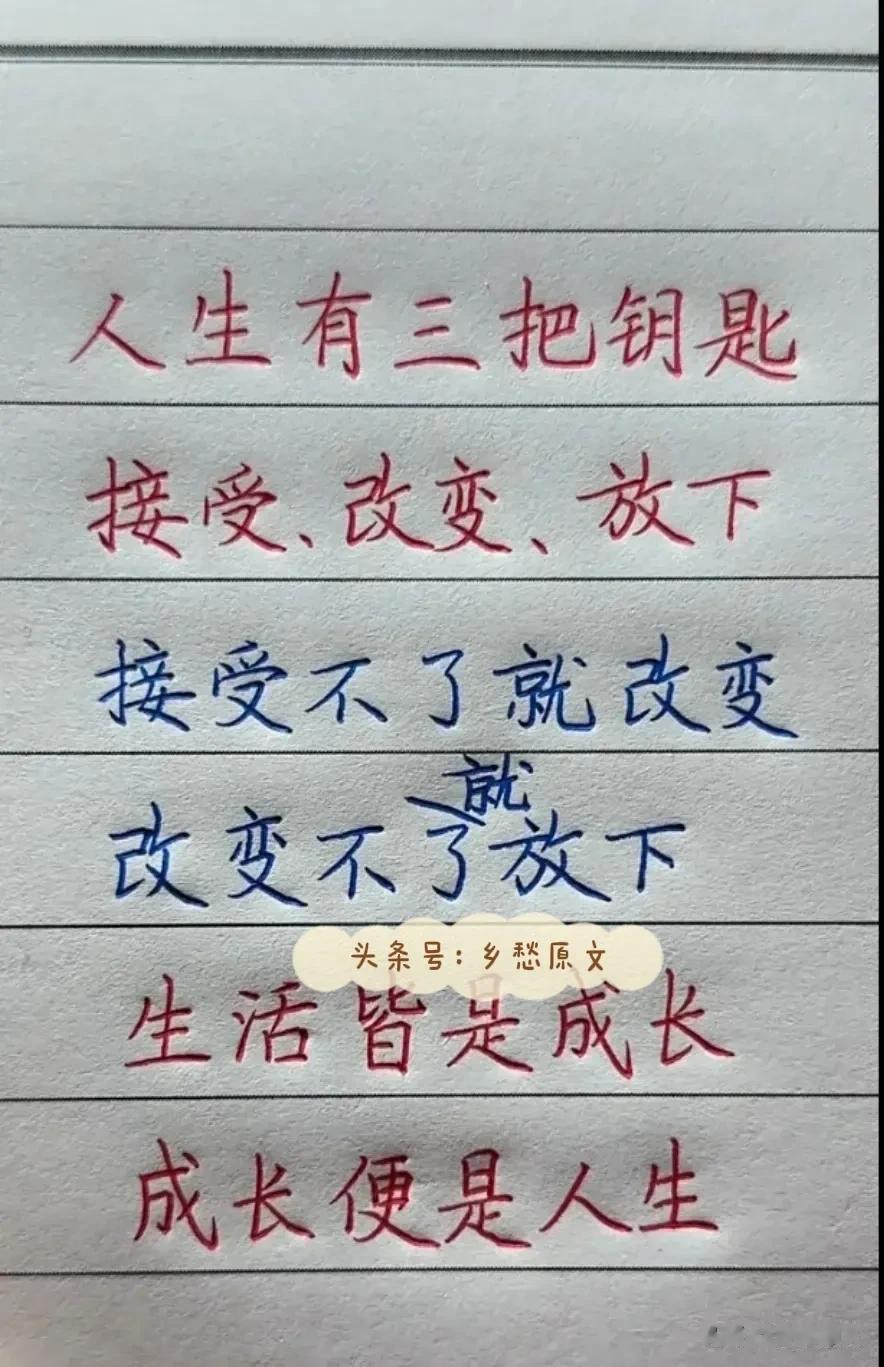 人生有三把钥匙
接受、改变、放下
接受不了就改变
改变不了就放下
头条号:乡愁原文
生活皆是成长
成长便是人生